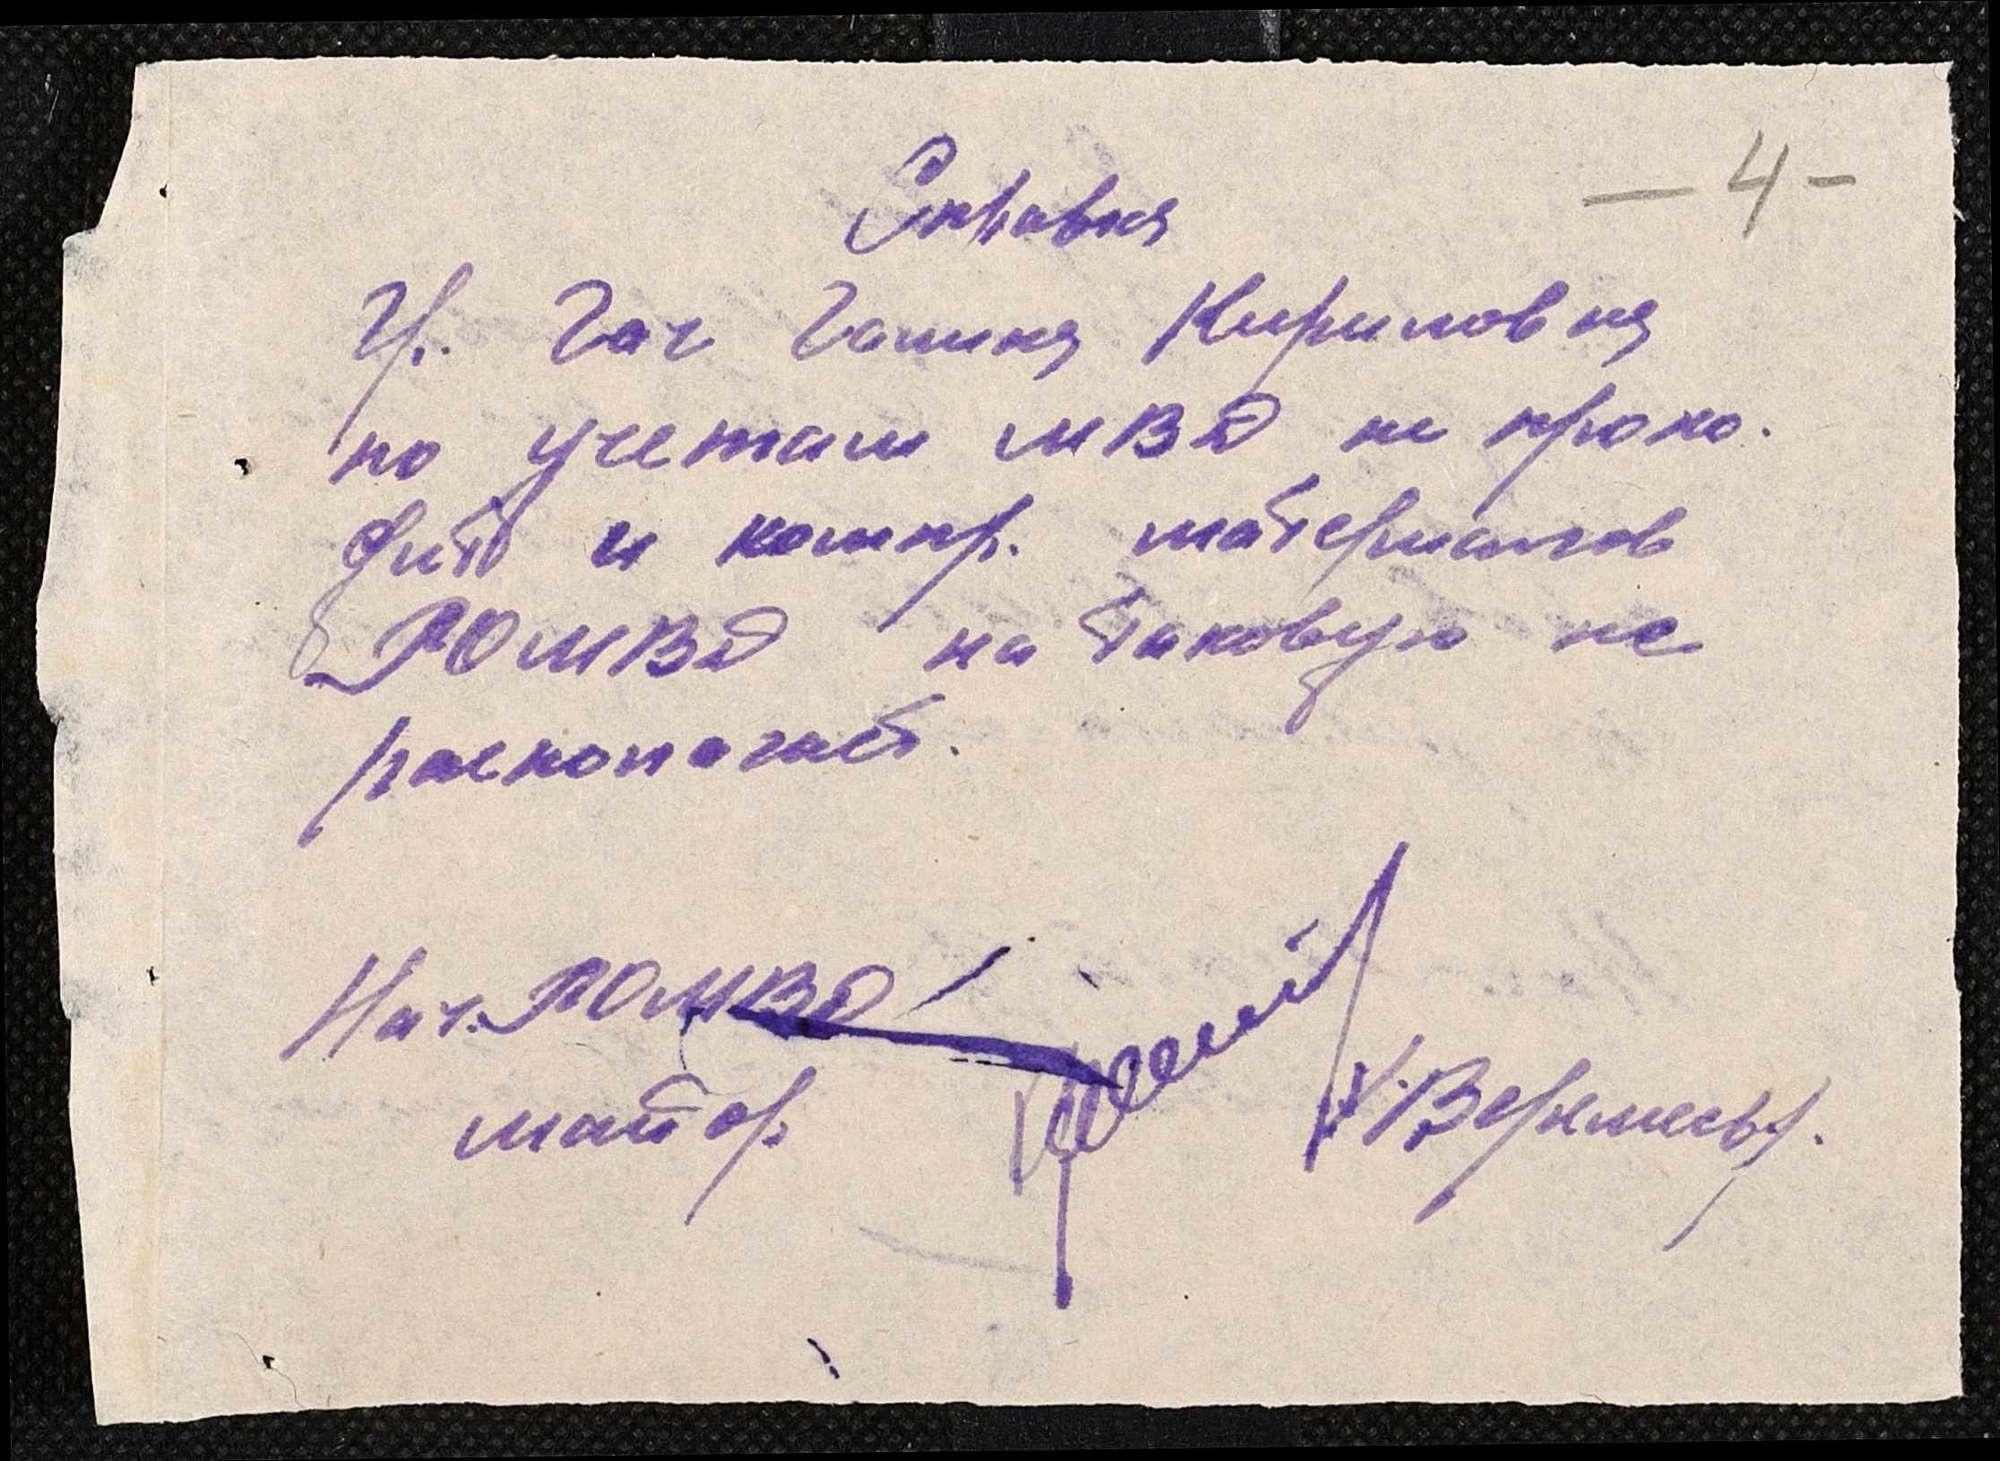 — 4 -
Справка
Гр. Гач Галина Кириловна
по учетам МВД не прохо-
дит и компр. материалов
РОМВД на таковую не
располагает.
Нач. РОМВД
майор